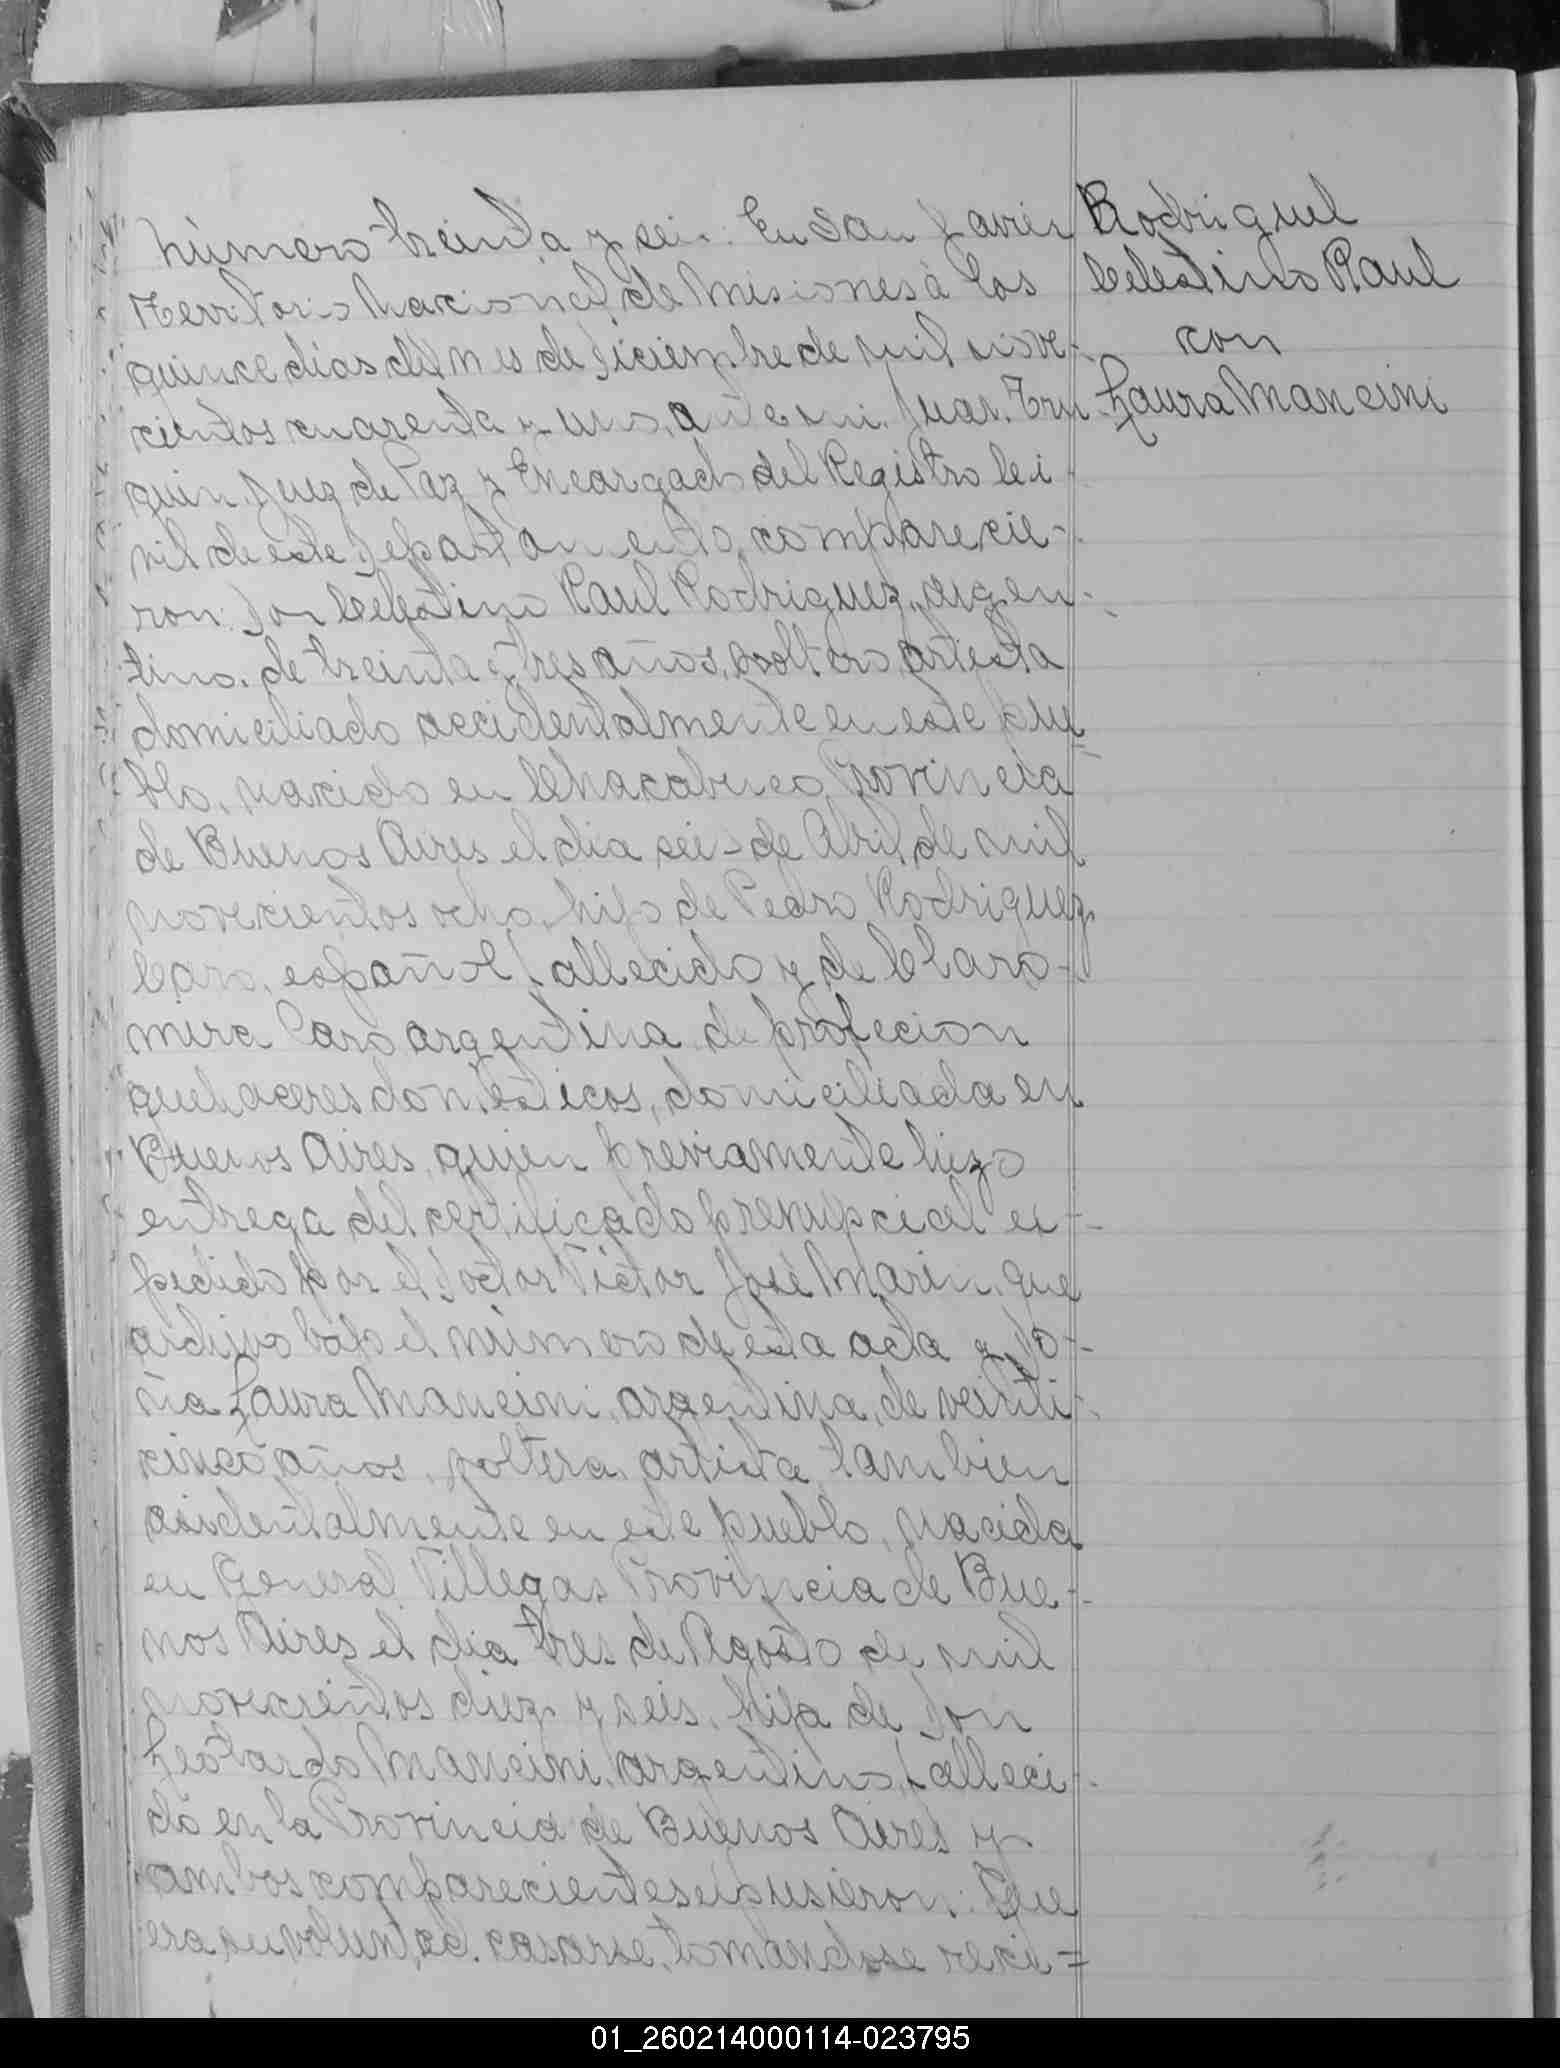 Número treinta y seis: En San Javier
Territorio Nacional de Misiones á los
quince dias del mes de Diciembre de mil nove-
cientos cuarenta y uno, ante mi Juan
quin Juez de Paz y Encargado del Registro Ci-
vil de este Departamento, comparecie-
ron: Don Celestino Raul Rodriguez, argen-
tino, de treinta y tres años, soltero, artista
domiciliado accidentalmente en este pue
blo, nacido en Chacabuco, Provincia
de Buenos Aires el dia seis de Abril de mil
novecientos ocho, hijo de Pedro Rodriguez
Caro, español fallecido y de Claro-
mira Caro argentina de profecion
quehaceres domésticos, domiciliada en
Buenos Aires, quien previamente hizo
entrega del certificado prenupcial ex-
pedido por el Doctor Victor José Marin, que
archivo bajo el número de esta acta y Do-
ña Laura Mancini, argentina, de veinti-
cinco años, soltera, artista, tambien
asidentalmente en este pueblo, nacida
en General Villegas Provincia de Bue-
nos Aires el dia tres de Agosto de mil
novecientos diez y seis, hija de Don
Mancini, argentino, falleci-
do en la Provincia de Buenos Aires y
ambos comparecientes expusieron: Que
era su voluntad casarse, tomandose reci=
Rodriguez
Celestino Raul
con
Laura Mancini
01_260214000114-023795